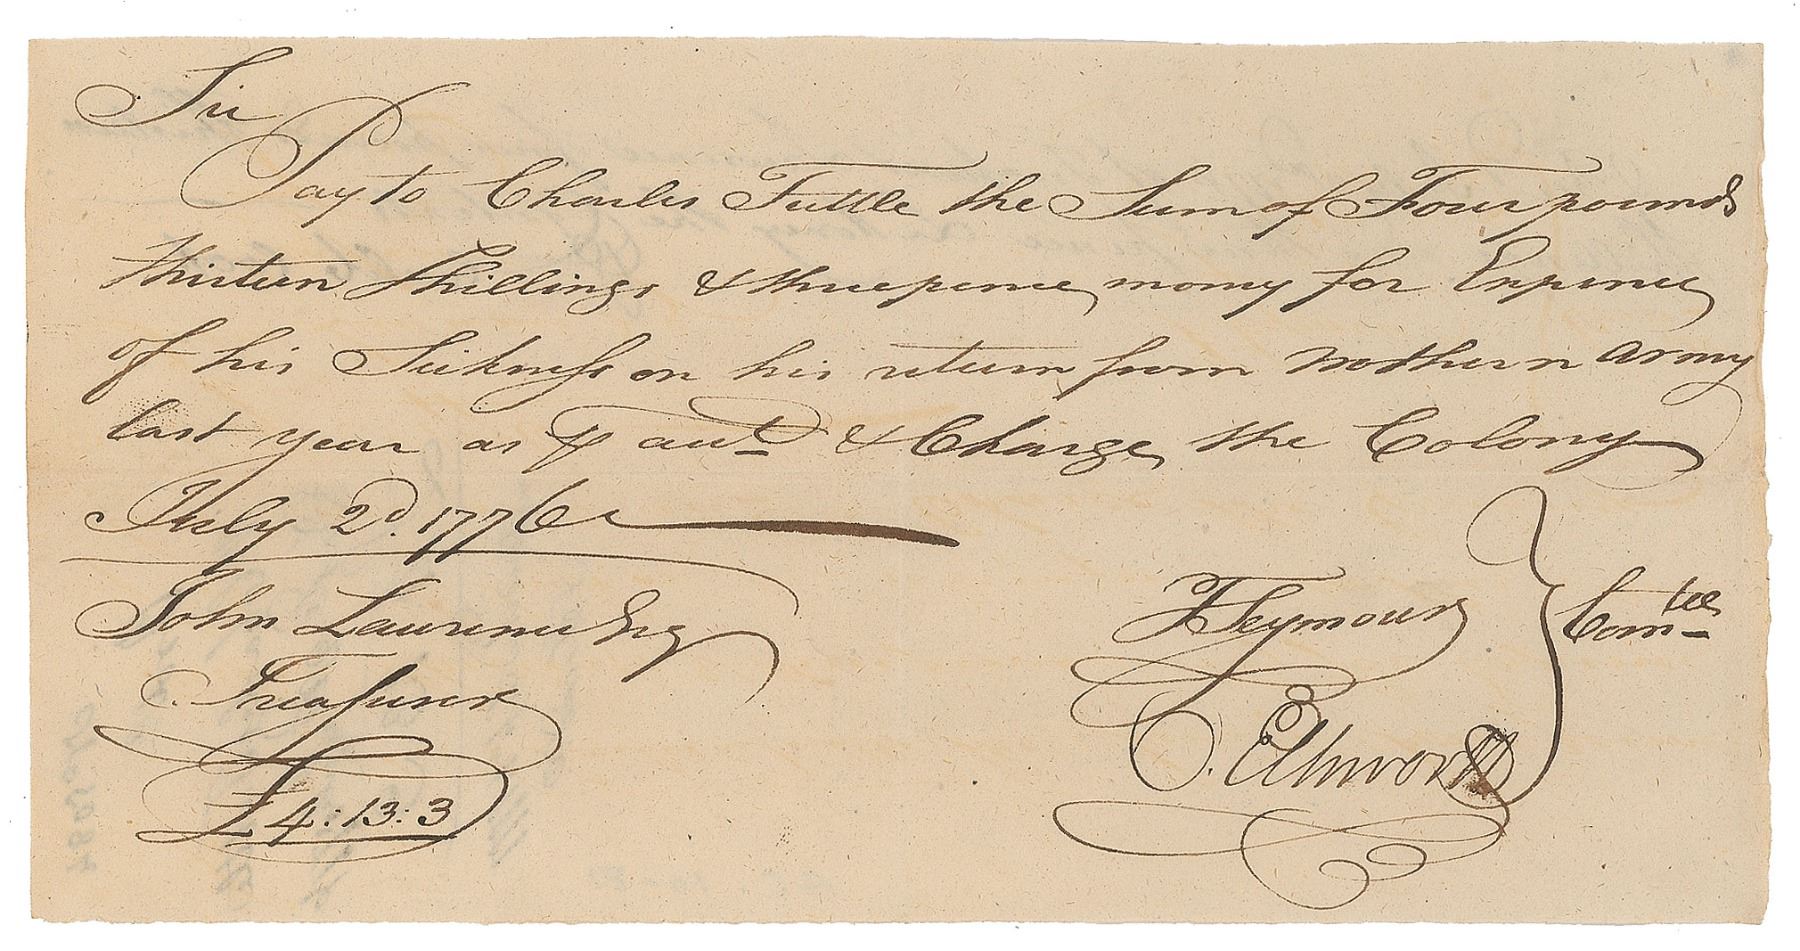 Sir
Pay to Charles Tuttle the Sum of Four pounds
thirteen Shillings & threepence money for Expence
of his Sickness on his return from Northern Army
last year as ⅌ acct & Charge the Colony
July 2d. 1776
John Lawrence Esq
Treasurer
£4:13:3
T Seymour
O. Ellsworth
Comtee